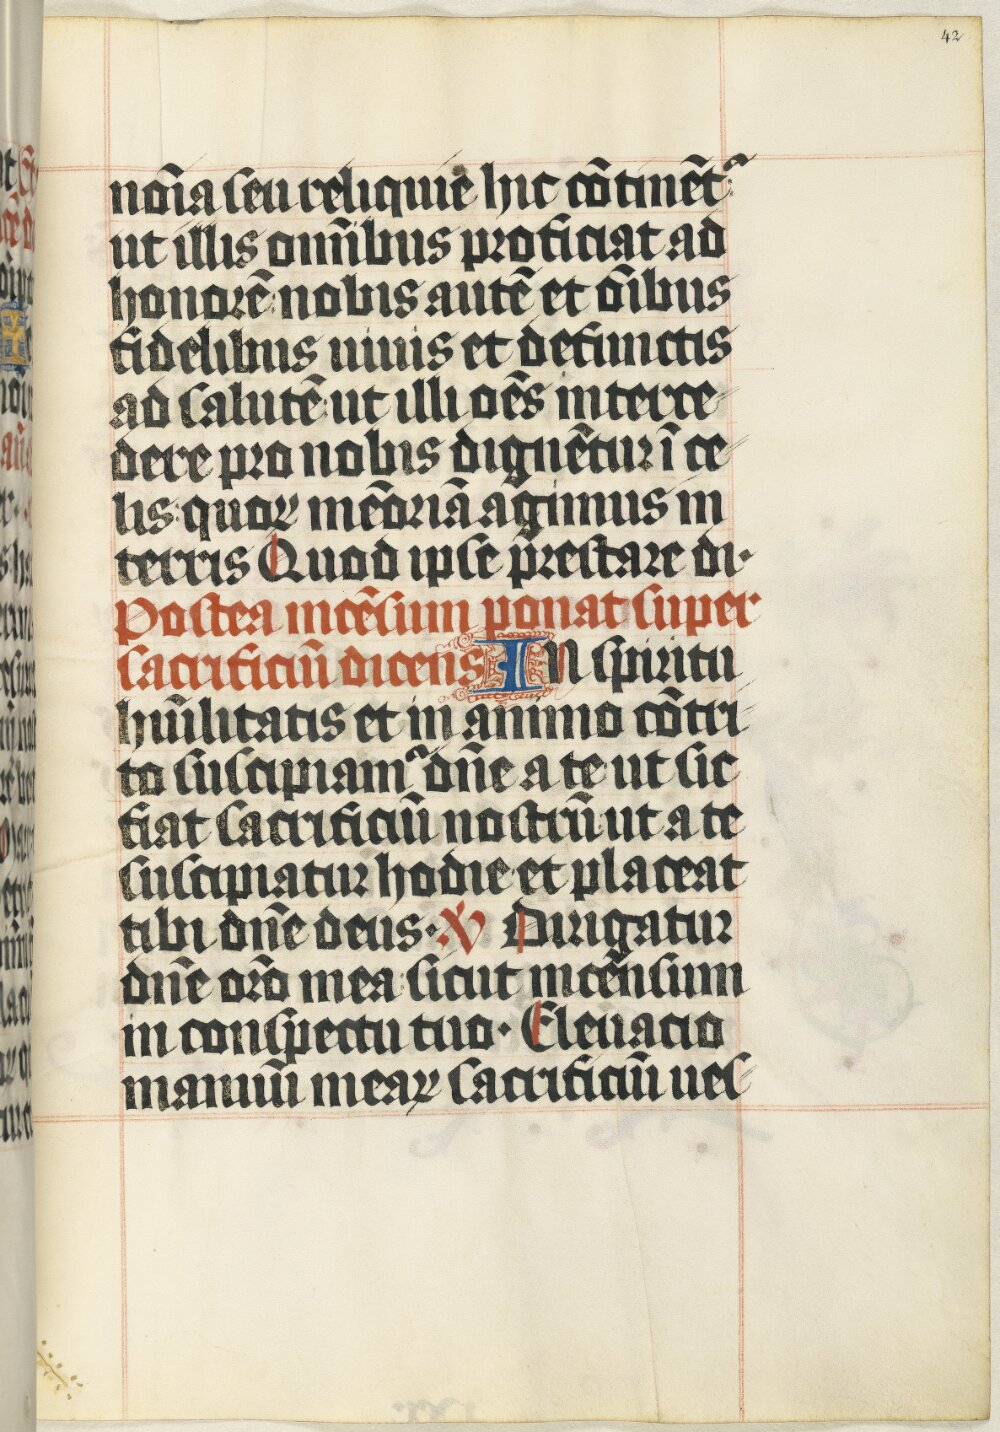 42
noı̄a seu reliquie hic cōtinēt᷑
ut illis om̄ibus proficiat ad
honorē nobis autē et oı̄bus
fidelibus uiuis et defunctis
ad salutē ut illi oēs interce
dere pro nobis dignētur ī ce
lis quoꝝ mēoriā agimus in
terris Quod ipse p̄restare di·
Postea incēsum ponat super
sacrificiū dicens IN spiritu
hūilitatis et in animo cōtri
to suscipiamᷣ dn̄e a te ut sic
fiat sacrificiū nostrū ut a te
suscipiatur hodie et placeat
tibi dn̄e deus· ℣ Dirigatur
dn̄e oro̅ mea sicut incēnsum
in conspectu tuo· Eleuacio
manuū meaꝝ sacrificiū ues